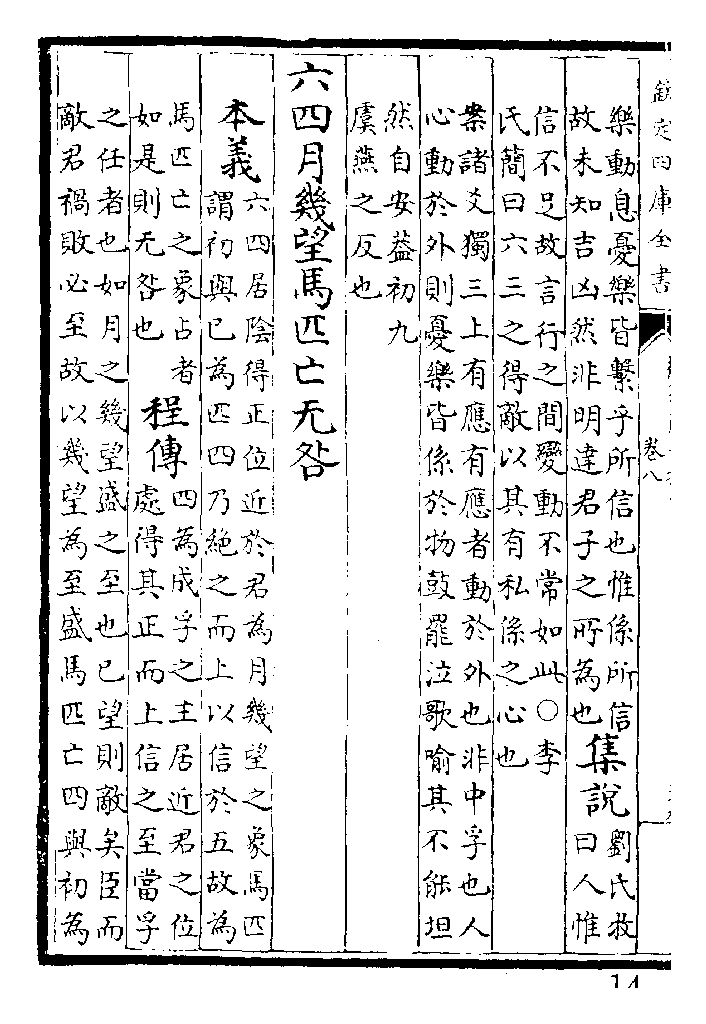 欽定四庫全書
卷八
樂動息憂樂皆繫乎所信也惟係所信
故未知吉凶然非明達君子之所為也
集說
劉氏牧
曰人惟
信不足故言行之間變動不常如此○李
氏簡曰六三之得敵以其有私係之心也
案諸爻獨三上有應有應者動於外也非中孚也人
心動於外則憂樂皆係於物鼓罷泣歌喻其不能坦
然自安蓋初九
虞燕之反也
六四月幾望馬匹亡无咎
本義
六四居陰得正位近於君為月幾望之象馬匹
謂初與已為匹四乃絶之而上以信於五故為
馬匹亡之象占者
如是則无咎也
程傳
四為成孚之主居近君之位
處得其正而上信之至當孚
之任者也如月之幾望盛之至也已望則敵矣臣而
敵君禍敗必至故以幾望為至盛馬匹亡四與初為